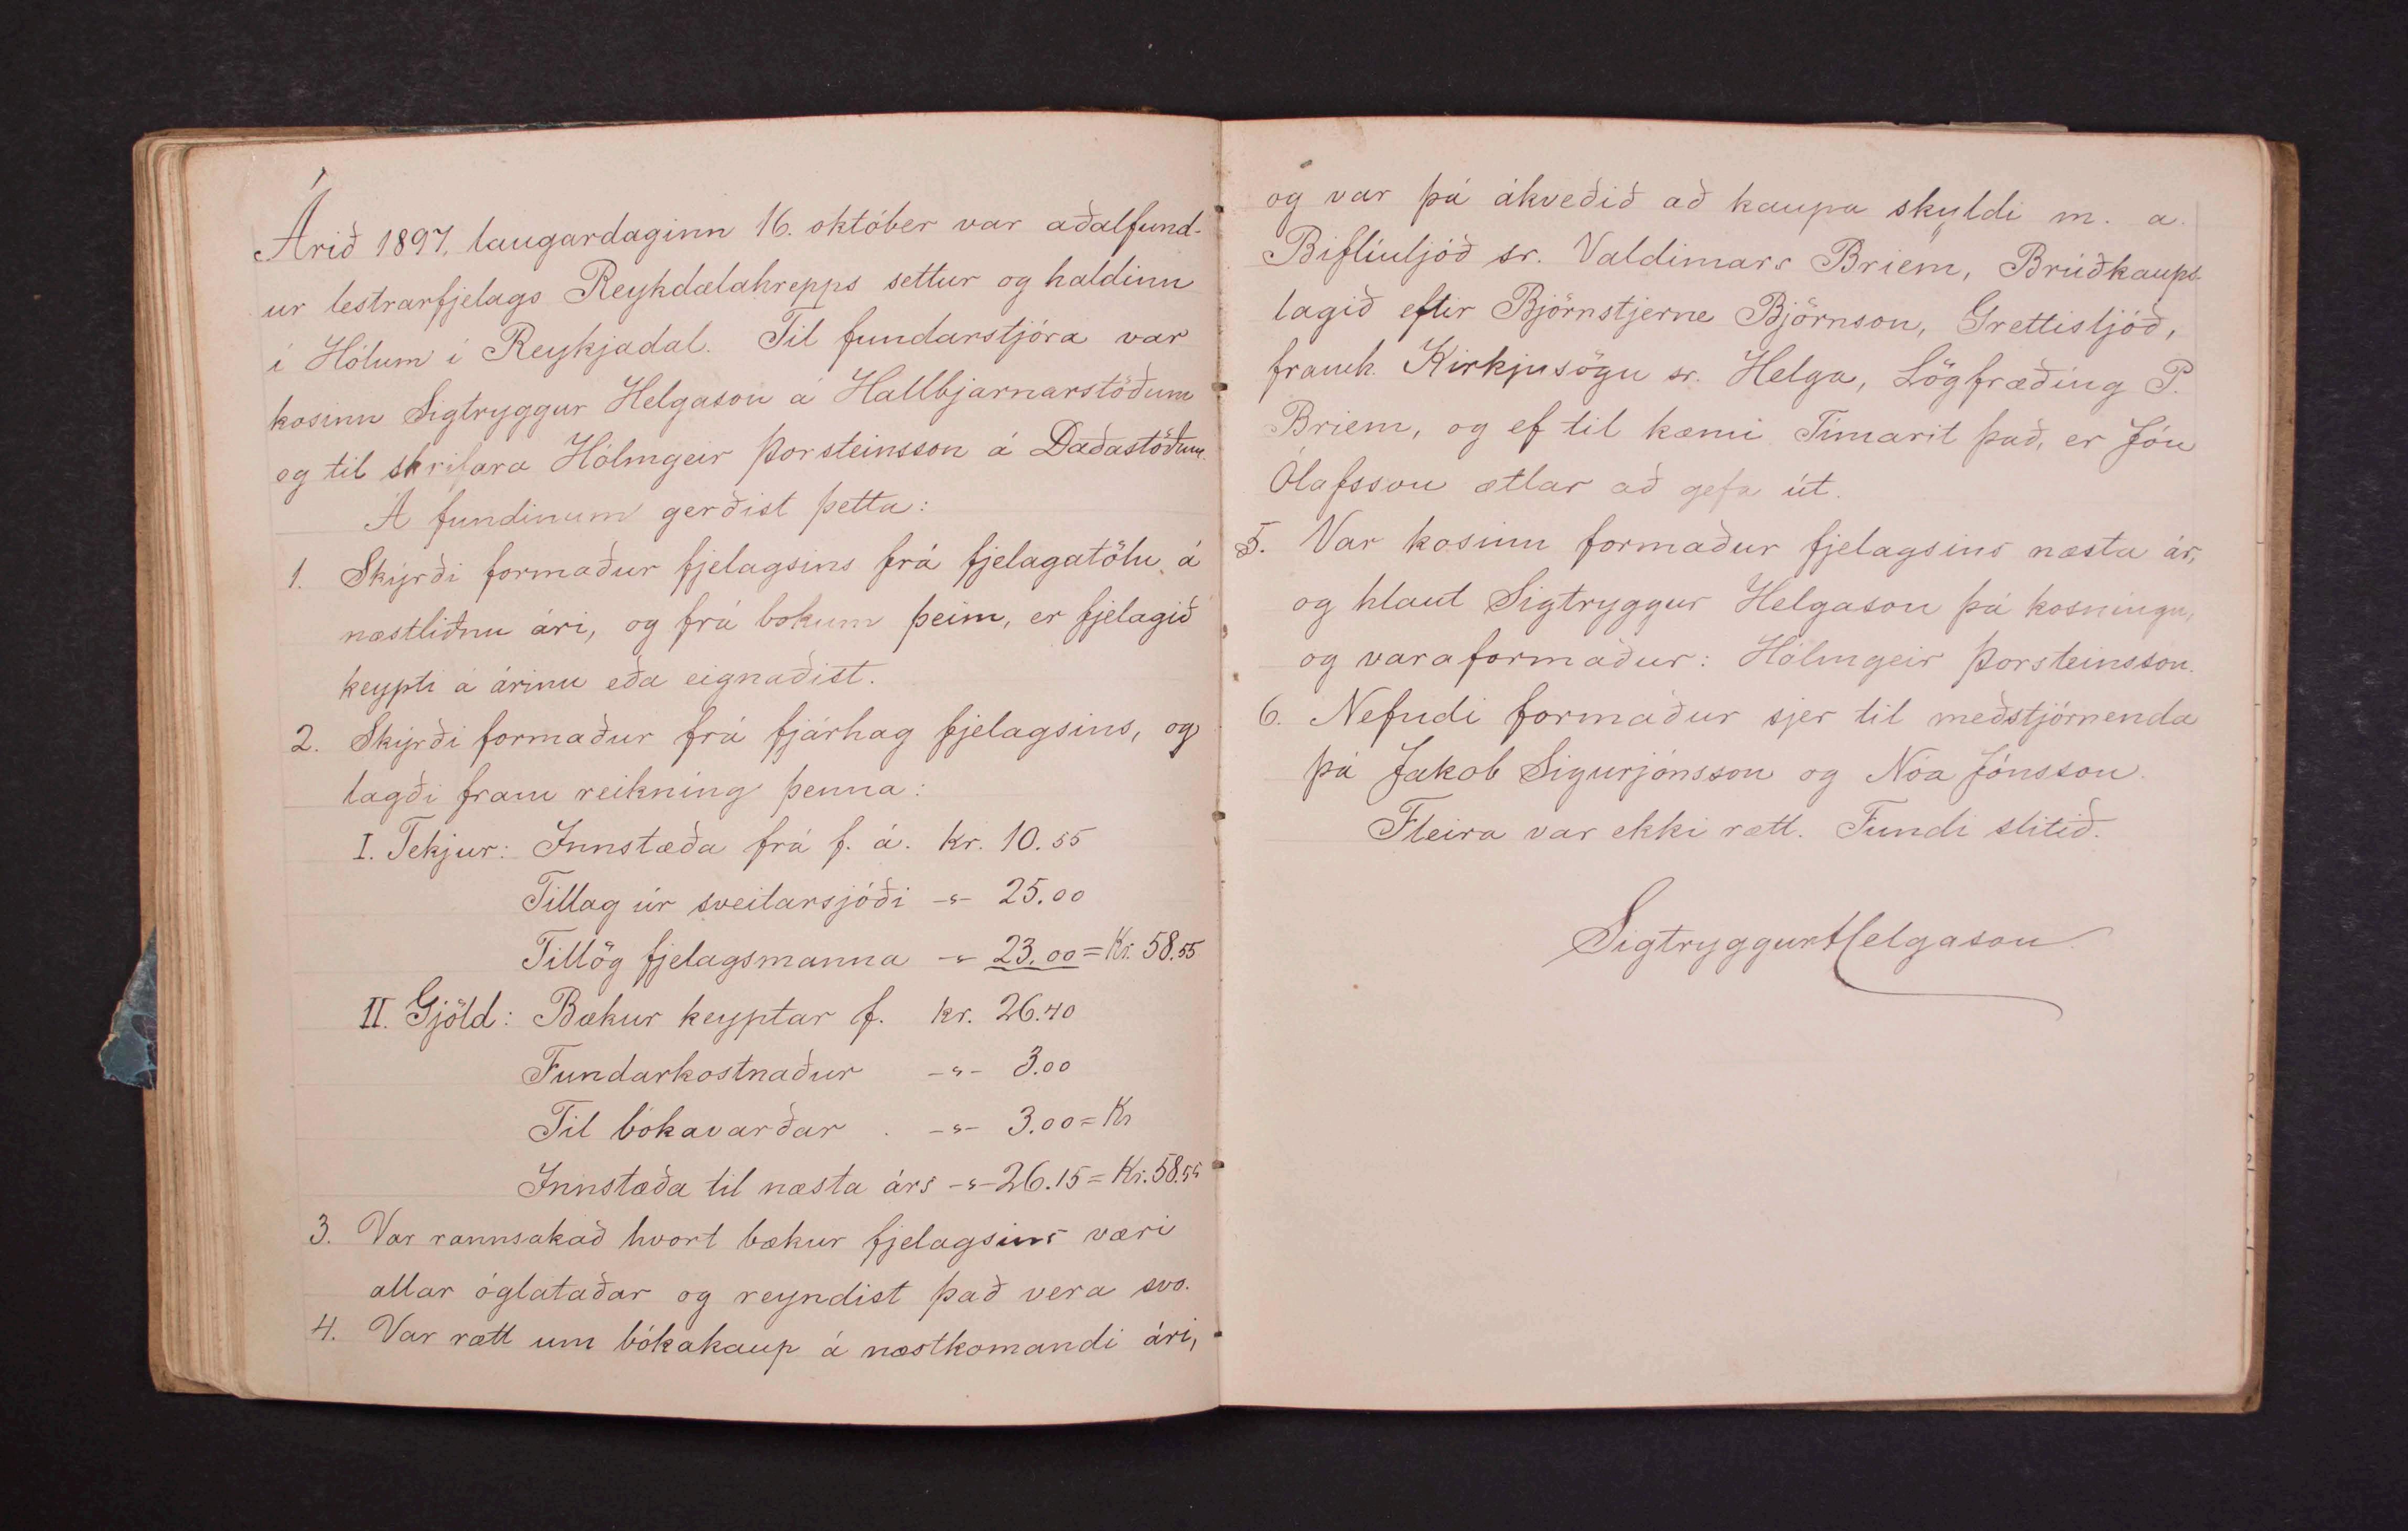 Árið 1897, laugardaginn 16. október var aðalfund-
ur lestrarfjelags Reykdælahrepps settur og haldinn
í Hólum í Reykjadal. Til fundarstjóra var
kosinn Sigtryggur Helgason á Hallbjarnarstöðum
og til skrifara Hólmgeir Þorsteinsson á Daðastöðum.
Á fundinum gerðist þetta:
1. Skýrði formaður fjelagsins frá fjelagatölu á
næstliðnu ári, og frá bókum þeim, er fjelagið
keypti á árinu eða eignaðist.
2. Skýrði formaður frá fjárhag fjelagsins, og
lagði fram reikning þenna:
I. Tekjur: Innstæða frá f. á. kr. 10.55
Tillag úr sveitarsjóði -"- 25.00
Tillög fjelagsmanna -"- 23.00 = Kr. 58.55
II. Gjöld: Bækur keyptar f. kr. 26.40
Fundarkostnaður -"- 3.00
Til bókavarðar . -"- 3.00 = Kr
Innstæða til næsta árs -"- 26.15 = Kr. 58.55
3. Var rannsakað hvort bækur fjelagsins væri
allar óglataðar og reyndist það vera svo.
4. Var rætt um bókakaup á næstkomandi ári,
og var þá ákveðið að kaupa skyldi m. a.
Biflíuljóð sr. Valdimars Briem, Brúðkaups-
lagið eftir Björnstjerne Björnson, Grettisljóð,
framh. Kirkjusögu sr. Helga, Lögfræðing P.
Briem, og ef til kæmi Tímarit það, er Jón
Ólafsson ætlar að gefa út.
5. Var kosinn formaður fjelagsins næsta ár,
og hlaut Sigtryggur Helgason þá kosningu,
og varaformaður: Hólmgeir Þorsteinsson.
6. Nefndi formaður sjer til meðstjórnenda
þá Jakob Sigurjónsson og Nóa Jónsson.
Fleira var ekki rætt. Fundi slitið.
Sigtryggur Helgason